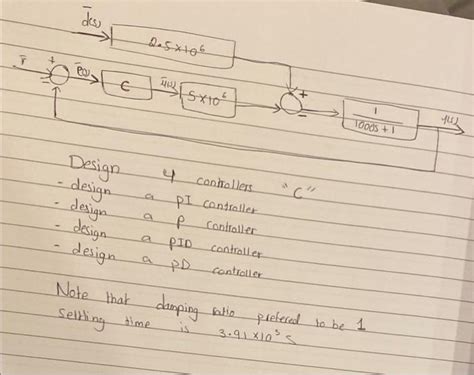 d(s)
2.5x10⁶
r + - e(s) C u(s) 5x10⁶ + - 1/1000s+1 y(s)
Design 4 controllers "C"
- design a PI controller
- design a P controller
- design a PID controller
- design a PD controller
Note that damping ratio prefered to be 1
settling time is 3.91x10³s